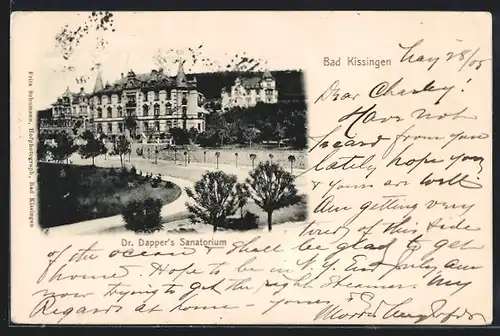 Bad Kissingen
May 28/05
Dear Charley.
Have not
heard from you
lately, hope you
& yours are well
Am getting very
tired of this side
of the ocean & shall be glad to get
home. Hope to be in N.Y. End July, am
now trying to get the right steamer. My
Regards at home yours
Dr. Dapper's Sanatorium
Fritz Schumann, Hofphotograph, Bad Kissingen